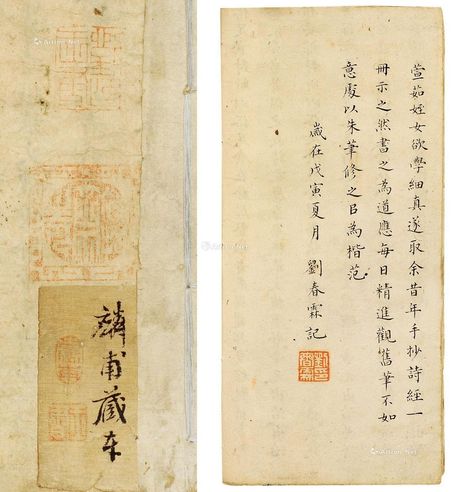 萱茹姪女欲學細真遂取余昔年手抄詩經一
冊示之然書之為道應每日精進觀舊筆不如
意處以朱筆修之㠯為楷范
歲在戊寅夏月 劉春霖記
劉印春霖
麟甫藏本